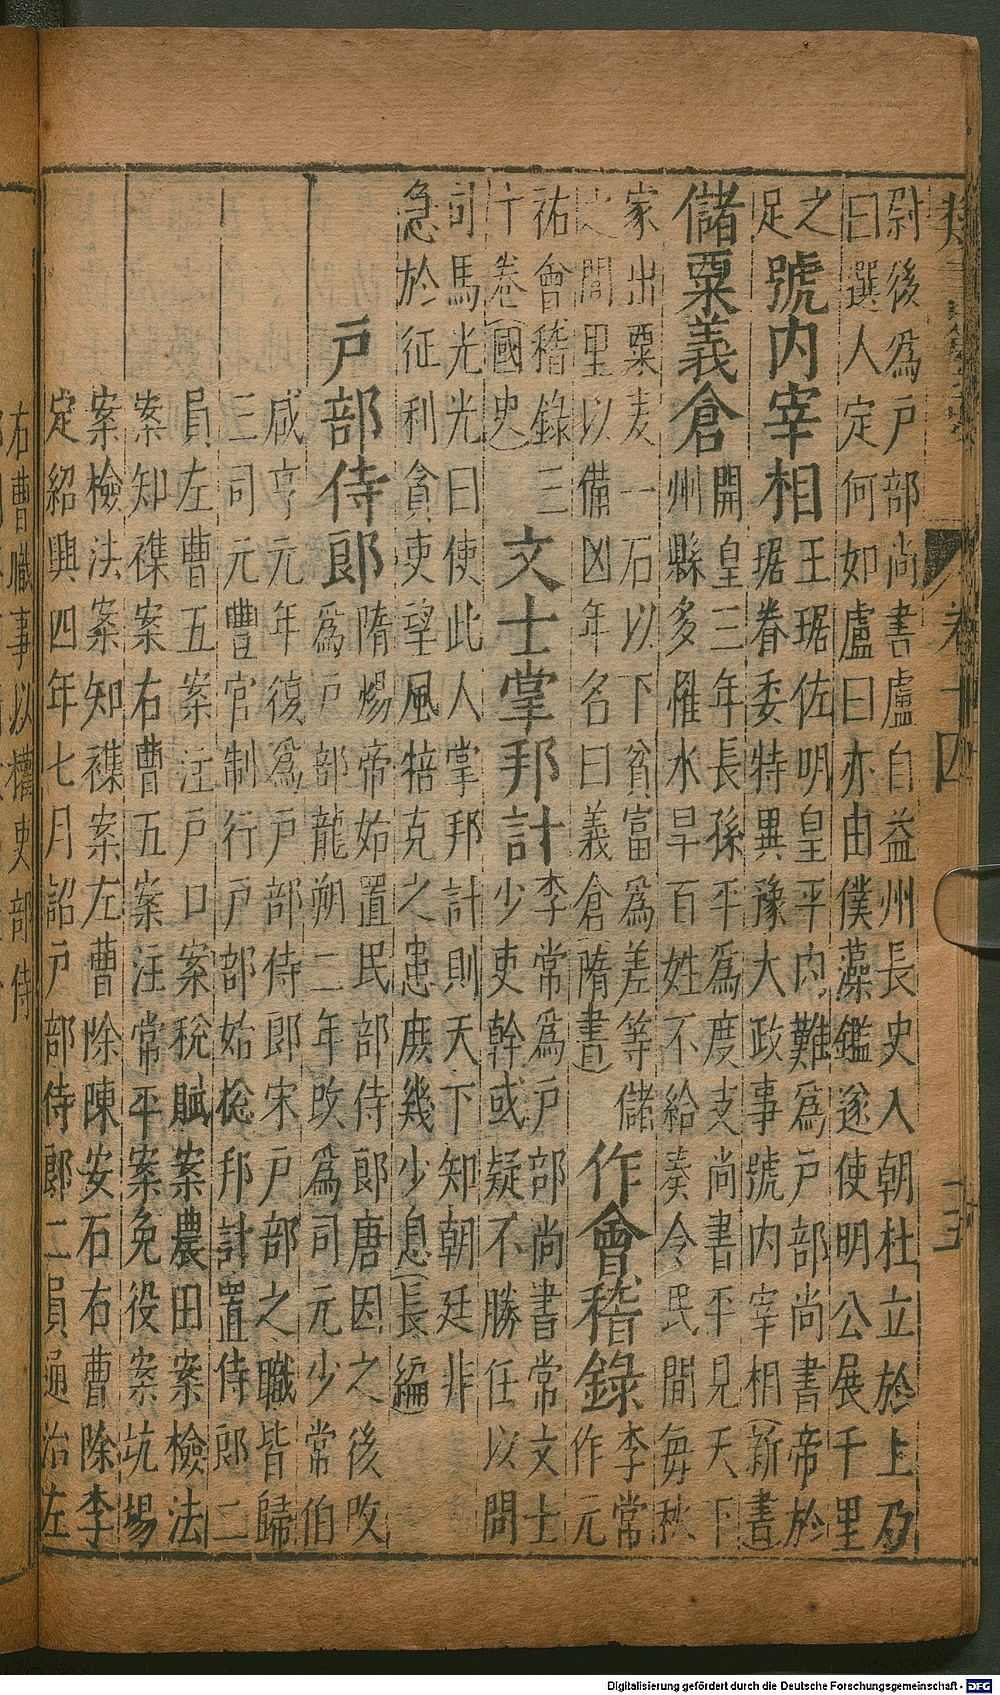 卷十四
十三
尉後爲户部尚書盧自益州長史入朝杜立於上及
曰選人定何如盧曰亦由僕藻鑑遂使明公展千里
之
足
號内宰相
王琚佐明皇平内難爲户部尚書帝於
琚眷委特異豫大政事號内宰相(新書
儲粟義倉
開皇三年長孫平爲度支尚書平見天下
州縣多罹水旱百姓不給奏令民間每秋
家出粟麦一石以下貧富爲差等儲
之閭里以備凶年名曰義倉(隋書)
作會稽錄
李常
作元
祐會稽錄三
十卷(國史)
文士掌邦計
李常爲户部尚書常文士
少吏幹或疑不勝任以問
司馬光光曰使此人掌邦計則天下知朝廷非
急於征利貪吏望風掊克之患庶幾少息(長編)
户部侍郎
隋煬帝始置民部侍郎唐因之後改
爲户部龍朔二年改爲司元少常伯
咸亨元年復爲户部侍郎宋户部之職皆歸
三司元豐官制行户部始捴邦計置侍郎二
員左曹五案注户口案稅賦案農田案檢法
案知襍案右曹五案注常平案免役案坑場
案檢法案知襍案左曹除陳安石右曹除李
定紹興四年七月詔户部侍郎二員通治左
右曹職事以權吏部侍
Digitalisierung gefördert durch die Deutsche Forschungsgemeinschaft - DFG